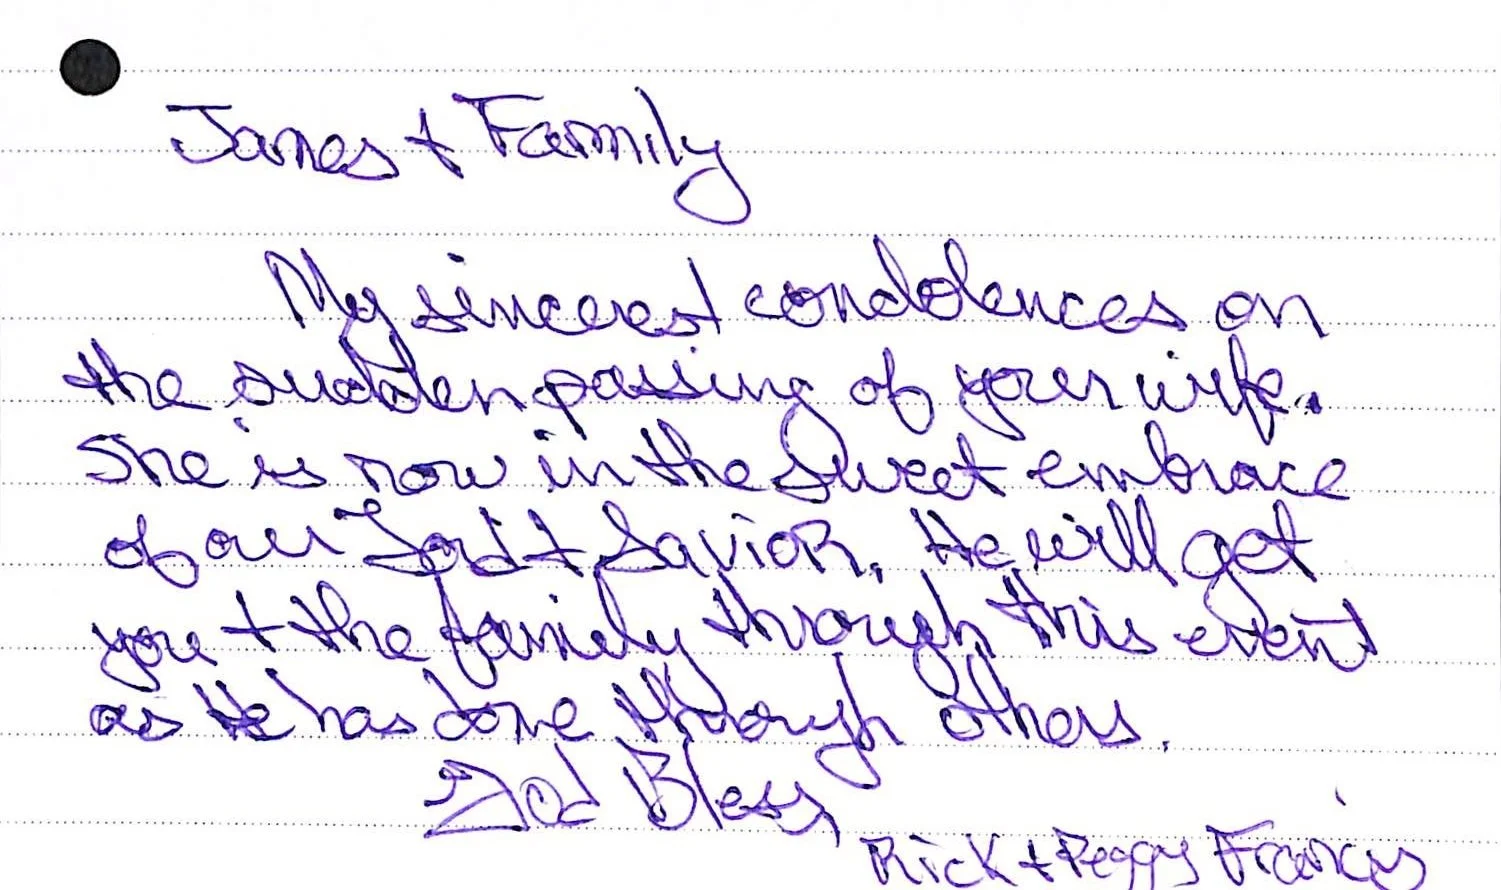 James + Family
My sincerest condolences on
the sudden passing of your wife.
She is now in the sweet embrace
of our Lord + Savior. He will get
you + the family through this event
as He has done through others.
God Bless
Rick + Peggy Francis